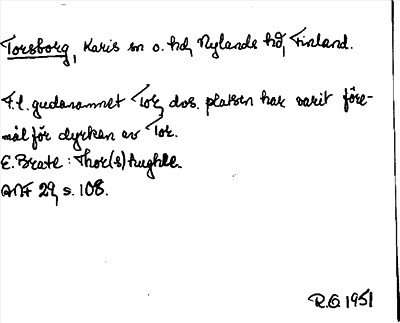 Torsborg, Karis sn o. hd, Nylands hd, Finland.
F.l. gudanamnet Tor, dvs. platsen har varit före-
mål för dyrkan av Tor.
E. Brate: Thor(s)hughle.
ANF 29, s. 108.
R.O 1951